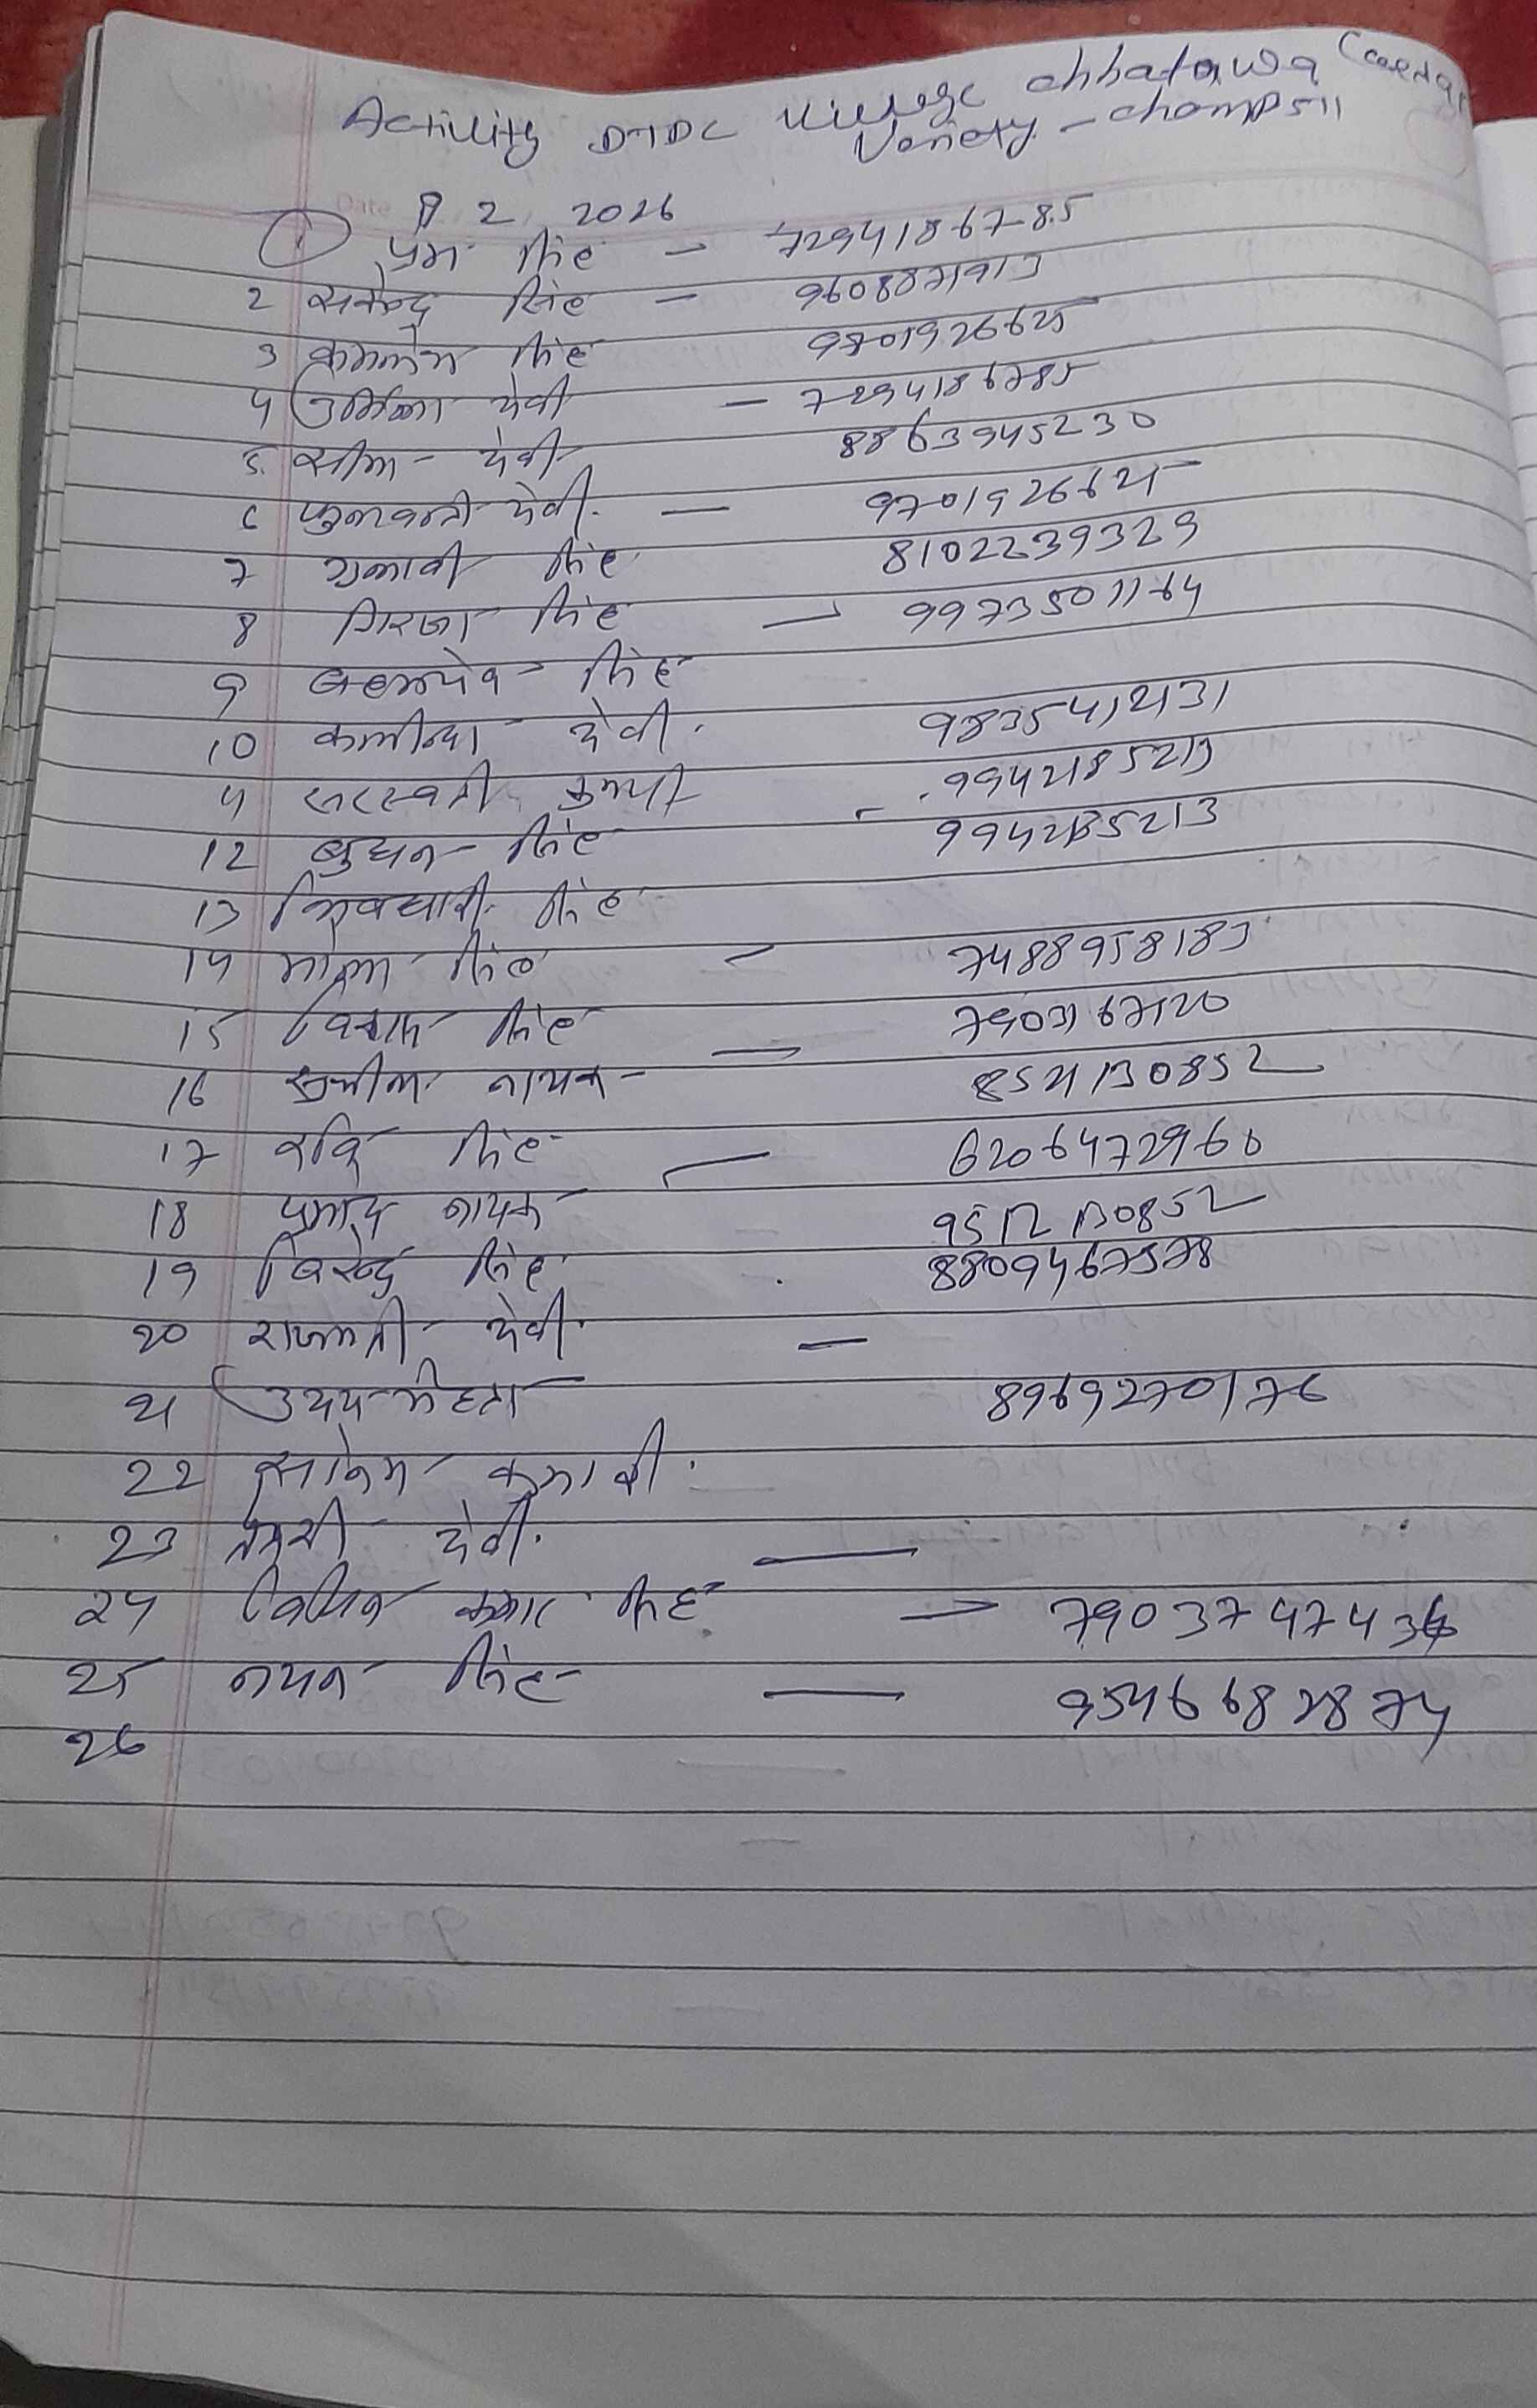 Activity DTDC Village chhatauwa
Variety - champ 511
Date 2 2026
1 प्रेम सिंह - 7294186785
2 सतेन्द्र सिंह - 9608871913
3 कमलेश सिंह 9801926625
4 उर्मिला देवी - 7294186785
5. सीमा - देवी 8863945230
6 फुलवन्ती देवी. - 9701926625
7 सिंह 8102239329
8 गिरजा सिंह - 9973501164
9 सिंह
10 देवी. 9835412131
11 सरस्वती - 9942185213
12 बुधन सिंह 9942185213
13 शिवधारी सिंह
14 सिंह - 7488958183
15 सिंह - 7903167120
16 नायक - 8521130852
17 रवि सिंह - 6206472960
18 प्रमोद नायक 9512130852
19 विरेन्द्र सिंह 8809467578
20 राजमती देवी -
21 उदय मेहता 8969270176
22 कुमारी.
23 देवी. -
24 विपिन कुमार सिंह - 7903747436
25 नयन सिंह - 9546687874
26